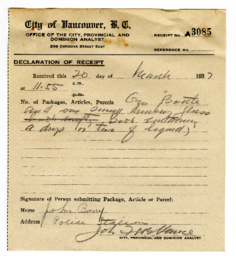 City of Vancouver, B.C.
OFFICE OF THE CITY, PROVINCIAL AND
DOMINION ANALYST
236 CORDOVA STREET EAST
RECEIPT NO. A3085
REFERENCE NO.
DECLARATION OF RECEIPT
Received this 20 day of March 193
at 11:55
No. of Packages, Articles, Parcels One Bottle
and one
a drop or two of liquid)
Signature of Person submitting Package, Article or Parcel:
Name John
Address Police
CITY, PROVINCIAL AND DOMINION ANALYST